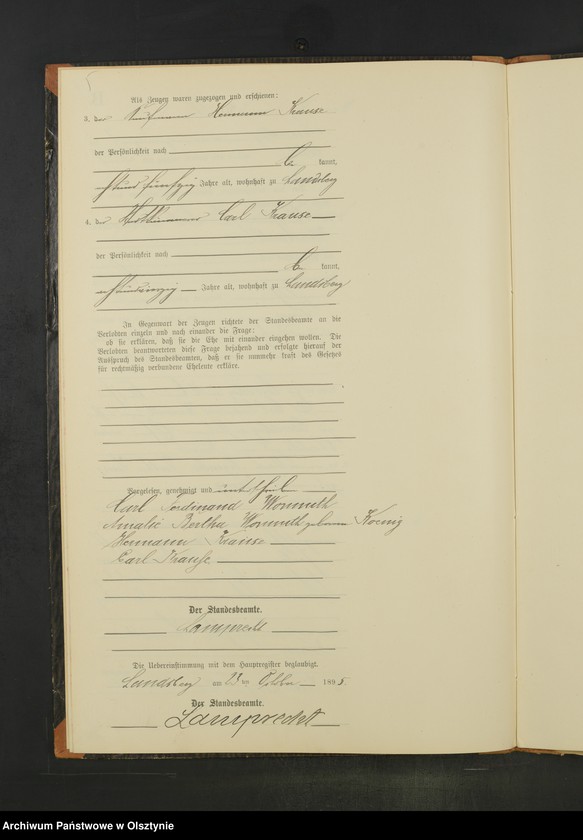 Als Zeugen waren zugezogen und erschienen:
3. der Hermann Krause
der Persönlichkeit nach
kannt,
Jahre alt, wohnhaft zu Landsberg
4. der Carl Krause
der Persönlichkeit nach
kannt,
Jahre alt, wohnhaft zu Landsberg
In Gegenwart der Zeugen richtete der Standesbeamte an die
Verlobten einzeln und nach einander die Frage:
ob sie erklären, daß sie die Ehe mit einander eingehen wollen. Die
Verlobten beantworteten diese Frage bejahend und erfolgte hierauf der
Ausspruch des Standesbeamten, daß er sie nunmehr kraft des Gesetzes
für rechtmäßig verbundene Eheleute erkläre.
Vorgelesen, genehmigt und
Carl Ferdinand Wormuth
Amalie Bertha Wormuth geborene Koenig
Hermann Krause
Carl Krause
Der Standesbeamte.
Lamprecht
Die Uebereinstimmung mit dem Hauptregister beglaubigt.
Landsberg am 23 ten 189
Der Standesbeamte.
Lamprecht
Archiwum Państwowe w Olsztynie